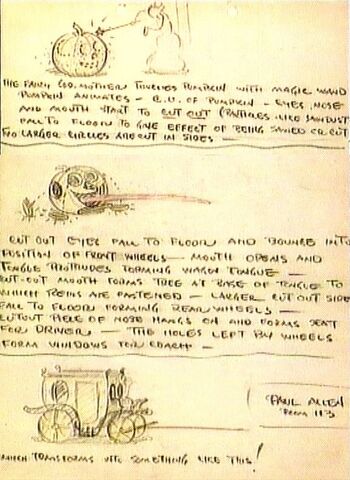 THE FAIRY GOD MOTHER TOUCHES PUMPKIN WITH MAGIC WAND
PUMPKIN ANIMATES - C.U. OF PUMPKIN - EYES, NOSE
AND MOUTH START TO CUT OUT (PARTICLES LIKE SAWDUST
FALL TO FLOOR TO GIVE EFFECT OF BEING SAWED OR CUT
TWO LARGER CIRCLES ARE CUT IN SIDES -
CUT OUT EYES FALL TO FLOOR AND BOUNCE INTO
POSITION OF FRONT WHEELS - MOUTH OPENS AND
TONGUE PROTRUDES FORMING WAGON TONGUE -
CUT-OUT MOUTH FORMS TREE AT BASE OF TONGUE TO
WHICH REINS ARE FASTENED - LARGER CUT OUT SIDES
FALL TO FLOOR FORMING REAR WHEELS -
CUTOUT PIECE OF NOSE HANGS ON AND FORMS SEAT
FOR DRIVER - THE HOLES LEFT BY WHEELS
FORM WINDOWS FOR COACH -
PAUL ALLEN
ROOM 113
WHICH TRANSFORMS INTO SOMETHING LIKE THIS!